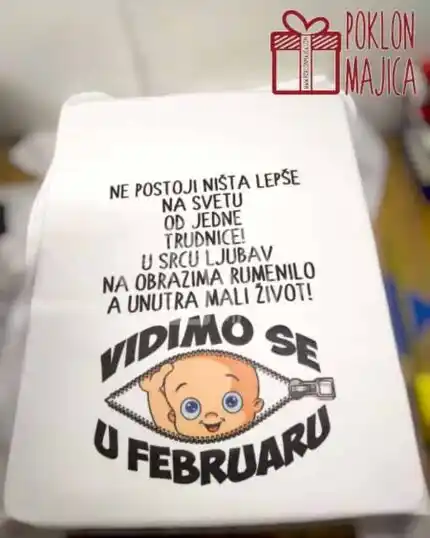 POKLON
MAJICA
NE POSTOJI NIŠTA LEPŠE
NA SVETU
OD JEDNE
TRUDNICE!
U SRCU LJUBAV
NA OBRAZIMA RUMENILO
A UNUTRA MALI ŽIVOT!
VIDIMO SE
U FEBRUARU